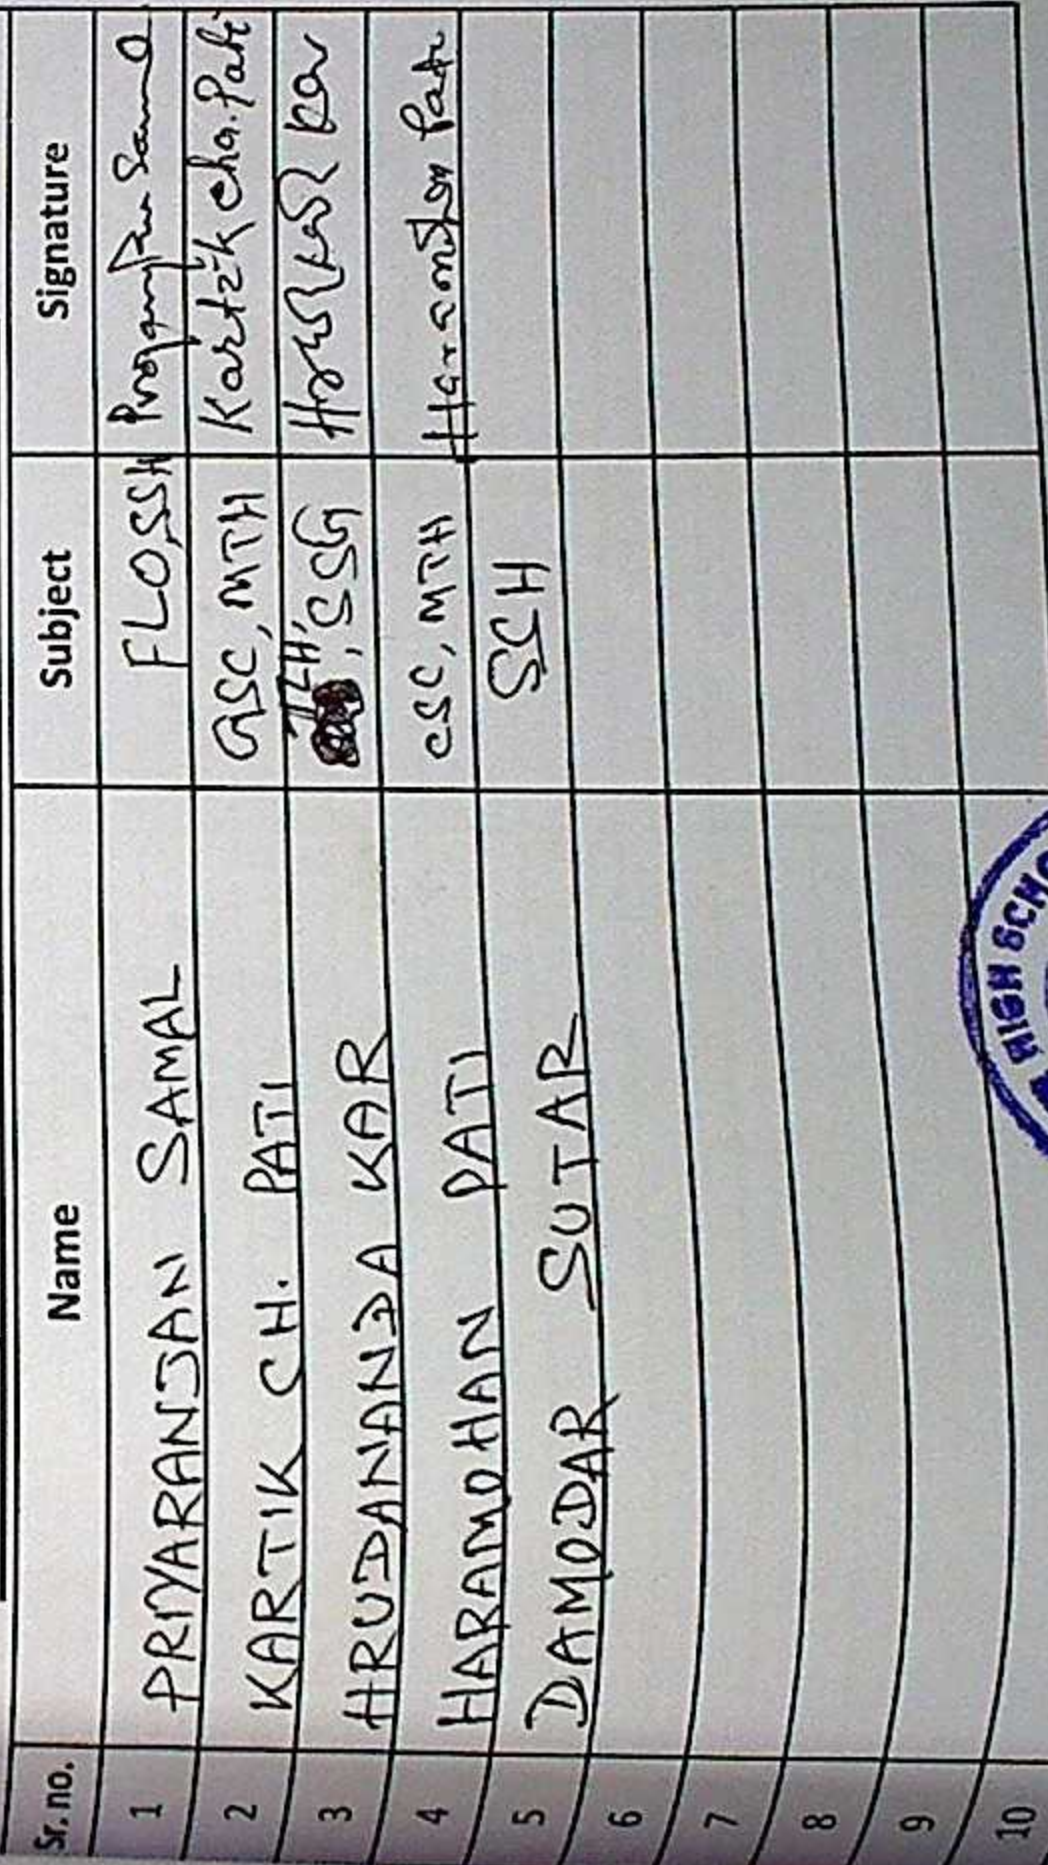 Sr. no. Name Subject Signature
1 PRIYARANJAN SAMAL FLO, SSH
2 KARTIK CH. PATI GSC, MTH Kartik cha. Pati
3 HRUDANANDA KAR TLH, SSG Kar
4 HARAMOHAN PATI CSC, MTH Haramohan Pati
5 DAMODAR SUTAR SCH
6
7
8
9
10
HIGH SCHO